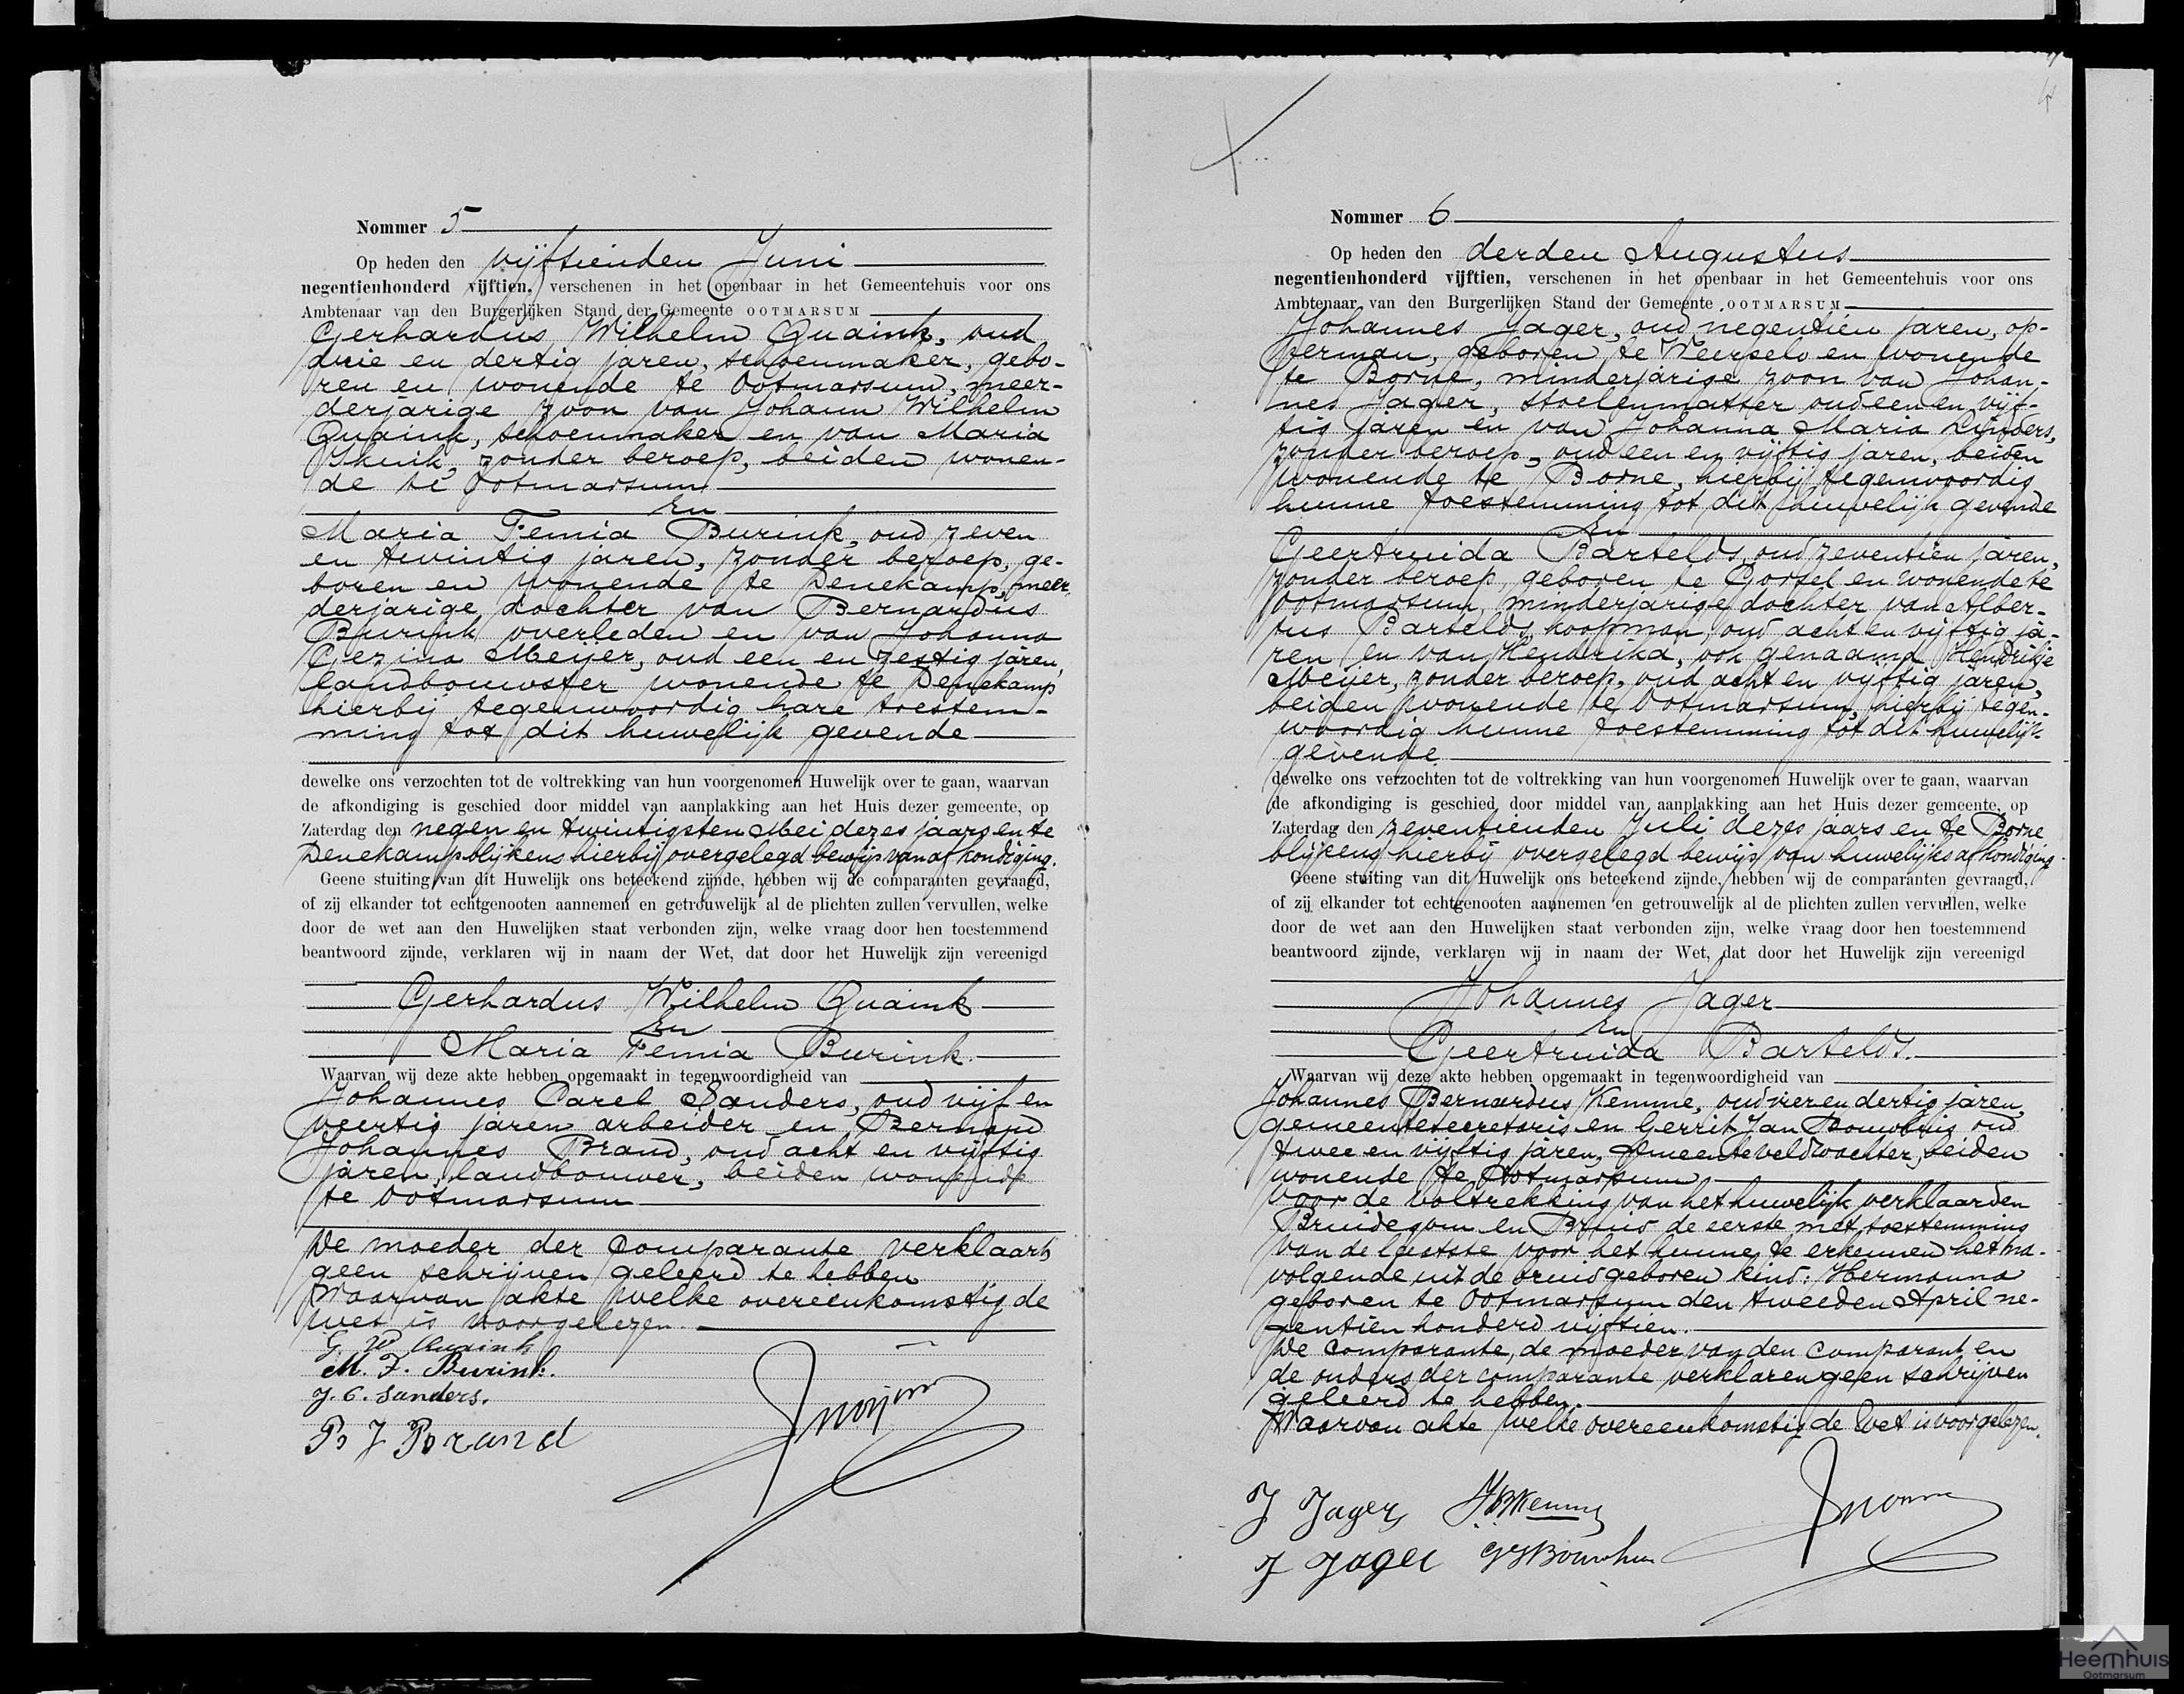 Nommer 5
Op heden den vijftienden Juni
negentienhonderd vijftien, verschenen in het openbaar in het Gemeentehuis voor ons
Ambtenaar van den Burgerlijken Stand der Gemeente OOTMARSUM
Gerhardus Wilhelm Quaink, oud
drie en dertig jaren, schoenmaker, gebo-
ren en wonende te Ootmarsum, meer-
derjarige zoon van Johann Wilhelm
Quaink, schoenmaker en van Maria
zonder beroep, beiden wonen-
de te Ootmarsum
En
Maria Femia Burink, oud zeven
en twintig jaren, zonder beroep, ge-
boren en wonende te Denekamp, meer
derjarige dochter van Bernardus
Burink overleden en van Johanna
Gezina Meijer, oud een en zestig jaren,
landbouwster wonende te Denekamp
hierbij tegenwoordig hare toestem-
ming tot dit huwelijk gevende
dewelke ons verzochten tot de voltrekking van hun voorgenomen Huwelijk over te gaan, waarvan
de afkondiging is geschied door middel van aanplakking aan het Huis dezer gemeente, op
Zaterdag den negen en twintigsten Mei dezes jaars en te
Denekamp blijkens hierbij overgelegd bewijs van afkondiging.
Geene stuiting van dit Huwelijk ons beteekend zijnde, hebben wij de comparanten gevraagd,
of zij elkander tot echtgenooten aannemen en getrouwelijk al de plichten zullen vervullen, welke
door de wet aan den Huwelijken staat verbonden zijn, welke vraag door hen toestemmend
beantwoord zijnde, verklaren wij in naam der Wet, dat door het Huwelijk zijn vereenigd
Gerhardus Wilhelm Quaink
En
Maria Femia Burink.
Waarvan wij deze akte hebben opgemaakt in tegenwoordigheid van
Johannes Carel Sanders, oud vijf en
veertig jaren arbeider en Bernard
Johannes Brand, oud acht en vijftig
jaren, landbouwer, beiden wonende
te Ootmarsum
De moeder der Comparante verklaart
geen schrijven geleerd te hebben
Waarvan akte welke overeenkomstig de
wet is voorgelezen.
G W Quaink
M. F. Burink.
J. C. Sanders.
B J Brand
Nommer 6
Op heden den derden Augustus
negentienhonderd vijftien, verschenen in het openbaar in het Gemeentehuis voor ons
Ambtenaar van den Burgerlijken Stand der Gemeente OOTMARSUM
Johannes Jager, oud negentien jaren, op-
perman, geboren te Weerselo en wonende
te Borne, minderjarige zoon van Johan-
nes Jager, stoelenmatter oud een en vijf-
tig jaren en van Johanna Maria Lunders,
zonder beroep, oud een en vijftig jaren, beiden
wonende te Borne, hierbij tegenwoordig
hunne toestemming tot dit huwelijk gevende
En
Geertruida Bartelds, oud zeventien jaren,
zonder beroep, geboren te Gorsel en wonende te
Ootmarsum, minderjarige dochter van Alber-
tus Bartelds, koopman oud acht en vijftig ja-
ren en van Hendrika, ook genaamd Hendrikje
Meijer, zonder beroep, oud acht en vijftig jaren,
beiden wonende te Ootmarsum, hierbij tegen-
woordig hunne toestemming tot dit huwelijk
gevende
dewelke ons verzochten tot de voltrekking van hun voorgenomen Huwelijk over te gaan, waarvan
de afkondiging is geschied door middel van aanplakking aan het Huis dezer gemeente, op
Zaterdag den zeventienden Juli dezes jaars en te Borne
blijkens hierbij overgelegd bewijs van huwelijksafkondiging
Geene stuiting van dit Huwelijk ons beteekend zijnde, hebben wij de comparanten gevraagd,
of zij elkander tot echtgenooten aannemen en getrouwelijk al de plichten zullen vervullen, welke
door de wet aan den Huwelijken staat verbonden zijn, welke vraag door hen toestemmend
beantwoord zijnde, verklaren wij in naam der Wet, dat door het Huwelijk zijn vereenigd
Johannes Jager
En
Geertruida Bartelds.
Waarvan wij deze akte hebben opgemaakt in tegenwoordigheid van
Johannes Bernardus Kemme, oud vier en dertig jaren,
gemeentesecretaris en Gerrit Jan Bouwhuis oud
twee en vijftig jaren, gemeenteveldwachter, beiden
wonende te Ootmarsum
Voor de voltrekking van het huwelijk verklaarden
Bruidegom en Bruid de eerste met toestemming
van de laatste voor het hunne te erkennen het na-
volgende uit de bruid geboren kind: Hermanna
geboren te Ootmarsum den tweeden April ne-
gentien honderd vijftien.
De Comparante, de moeder van den Comparant en
de ouders der comparante verklaren geen schrijven
geleerd te hebben.
Waarvan akte welke overeenkomstig de wet is voorgelezen.
J Jager JBKemme
J Jager GJBouwhuis
Heemhuis
Ootmarsum